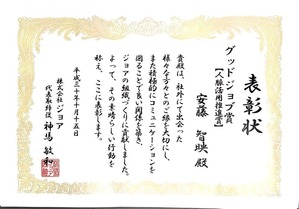 表彰状
グッドジョブ賞
【人脈活用推進賞】
安藤 智映 殿
貴殿は、社外にて出会った
様々な方々とのご縁を大切にし、
また積極的にコミュニケーションを
図ることで良い関係を築き、
ジョアの組織づくりに貢献しました。
よって、その素晴らしい行動を
称え、ここに表彰します。
平成三十年十月十五日
株式会社ジョア
代表取締役 神馬 敏和